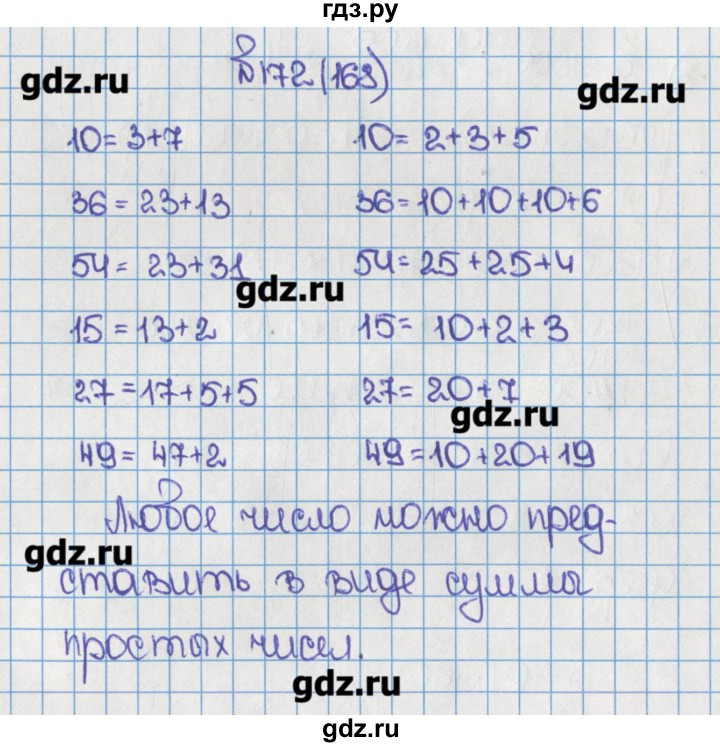 гдз.ру
№172(168)
gdz.ru
gdz.ru
10= 3+7 10= 2+3+5
36= 23+13 36=10+10+10+6
54= 23+31 54=25+25+4
gdz.ru
15=13+2 15= 10+2+3
27=17+5+5 27= 20+7
gdz.ru
49= 47+2 49=10+20+19
Любое число можно пред-
gdz.ru
ставить в виде суммы
простых чисел.
gdz.ru
gdz.ru